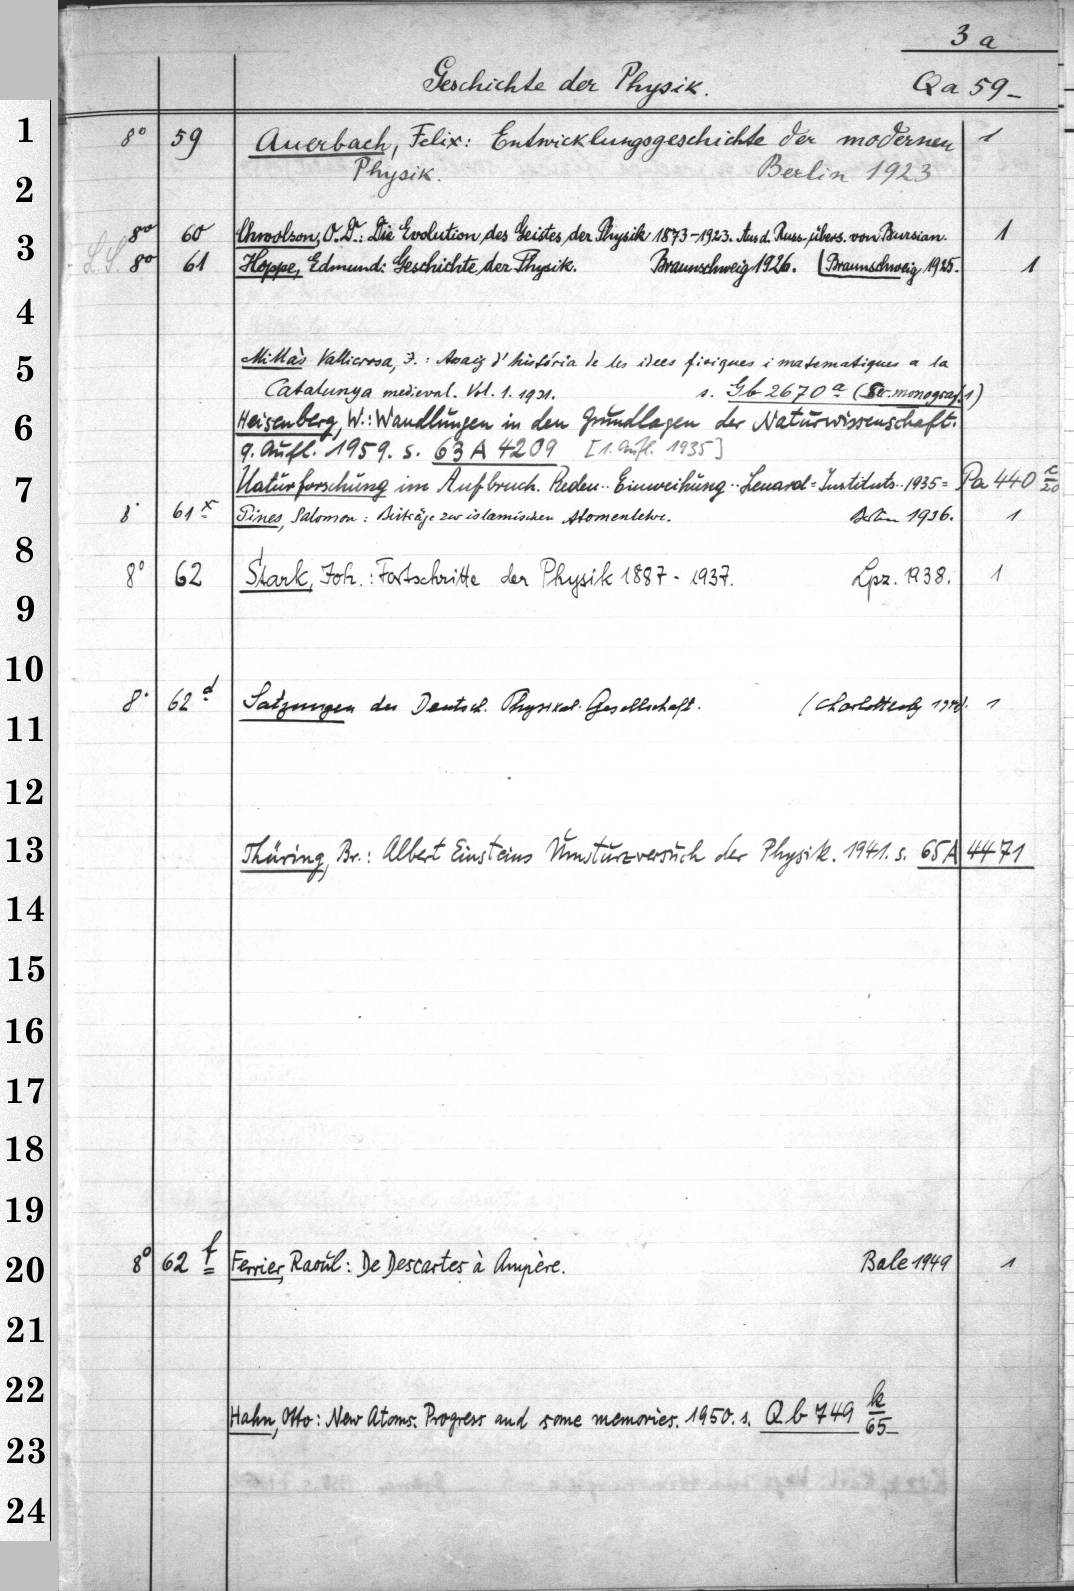 3 a
Geschichte der Physik. Qa 59-
1 8° 59 Auerbach, Felix: Entwicklungsgeschichte der modernen 1
2 Physik. Berlin 1923
3 8° 60 Chwolson, O. D.: Die Evolution des Geistes der Physik 1873-1923. Aus d. Russ. übers. von Bursian. 1
8° 61 Hoppe, Edmund: Geschichte der Physik. Braunschweig 1926. (Braunschweig 1925. 1
4
5 Millàs Vallicrosa, J.: Assaig d'història de les idees fisiques i matematiques a la
Catalunya medieval. Vol. 1. 1931. s. Gb 2670 a (Ser. monograf. 1)
6 Heisenberg, W.: Wandlungen in den Grundlagen der Naturwissenschaft.
9. Aufl. 1959. s. 63 A 4209 [1. Aufl. 1935]
7 Naturforschung im Aufbruch. Reden.. Einweihung.. Lenard=Instituts.. 1935= Pa 440 c/20
8° 61 x Pines, Salomon: Beiträge zur islamischen Atomenlehre. Berlin 1936. 1
8
8° 62 Stark, Joh.: Fortschritte der Physik 1887-1937. Lpz. 1938. 1
9
10
8° 62 d Satzungen der Deutsch. Physikal. Gesellschaft. (Charlottenbg 1
11
12
13 Thüring, Br.: Albert Einsteins Umsturzversuch der Physik. 1941. s. 65 A 4471
14
15
16
17
18
19
20 8° 62 f Ferrier, Raoul: De Descartes à Ampère. Bale 1949 1
21
22
Hahn, Otto: New Atoms. Progress and some memories. 1950. s. Qb 749 k/65
23
24